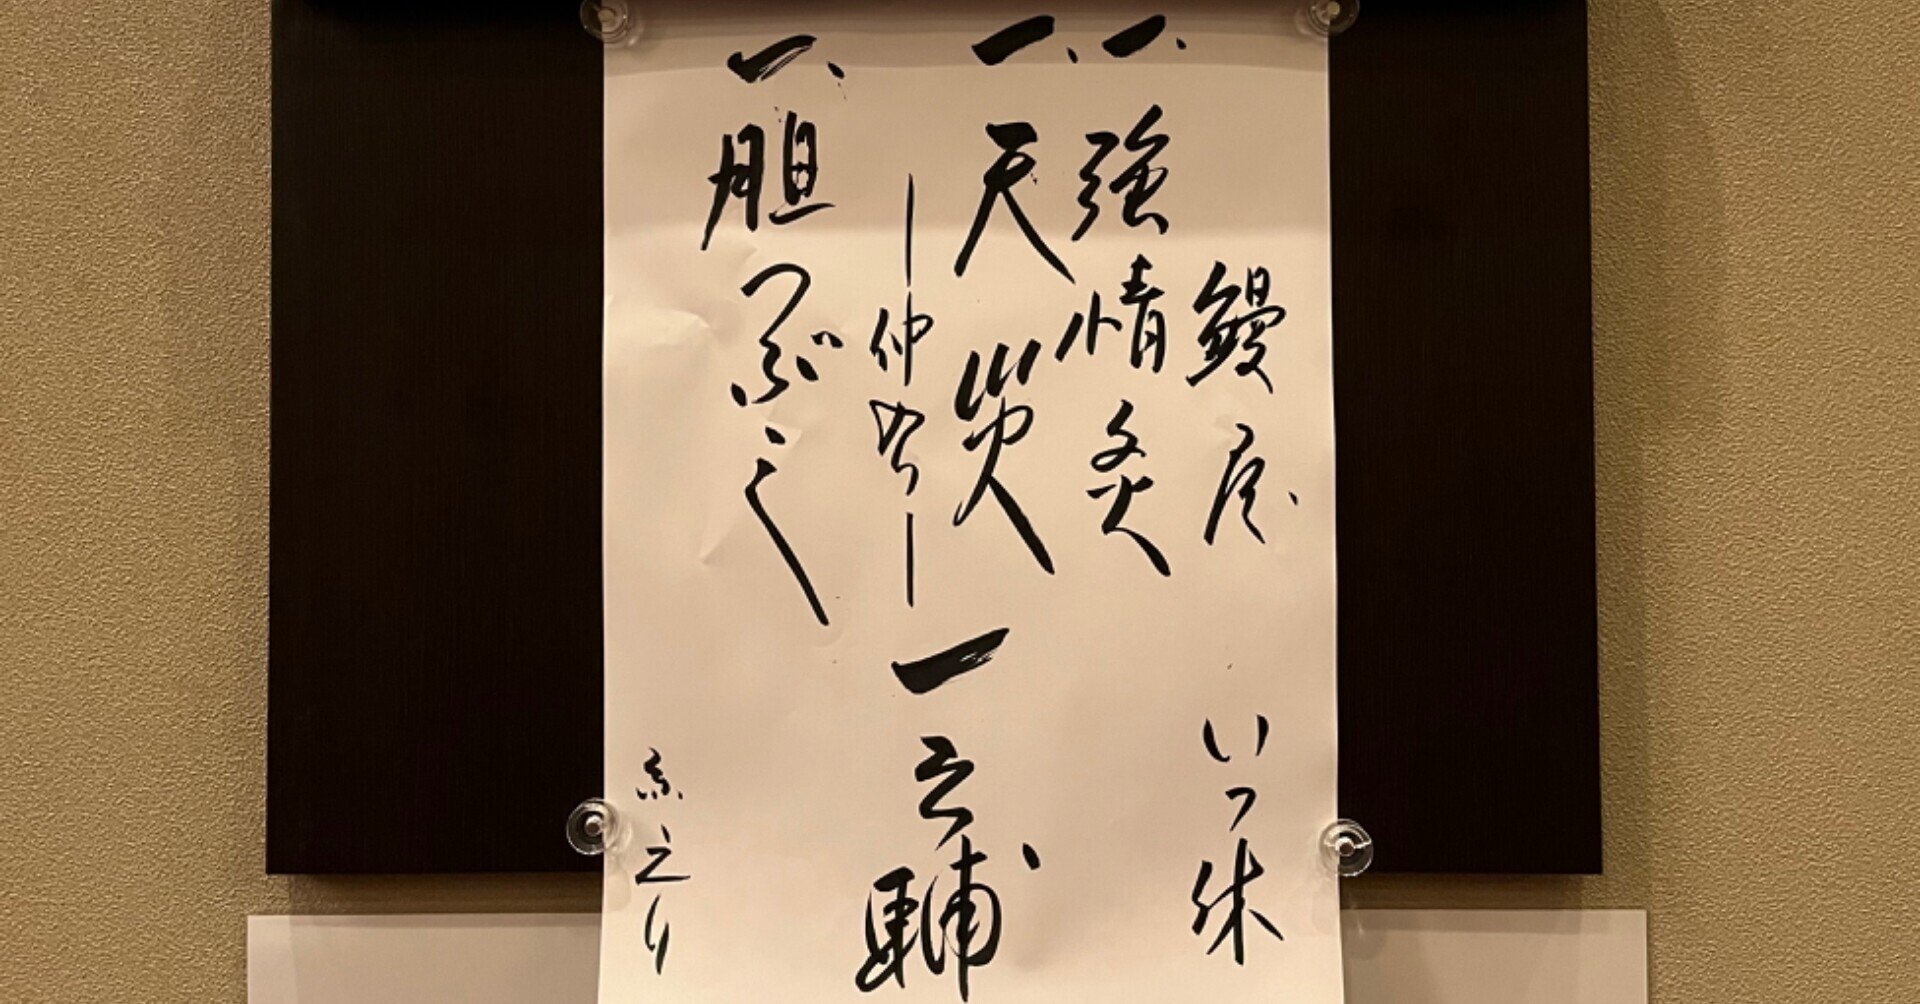 鰻屋 いっ休
一、強情灸
一、天災
一之輔
―仲入り―
一、胆つぶし
糸 えり